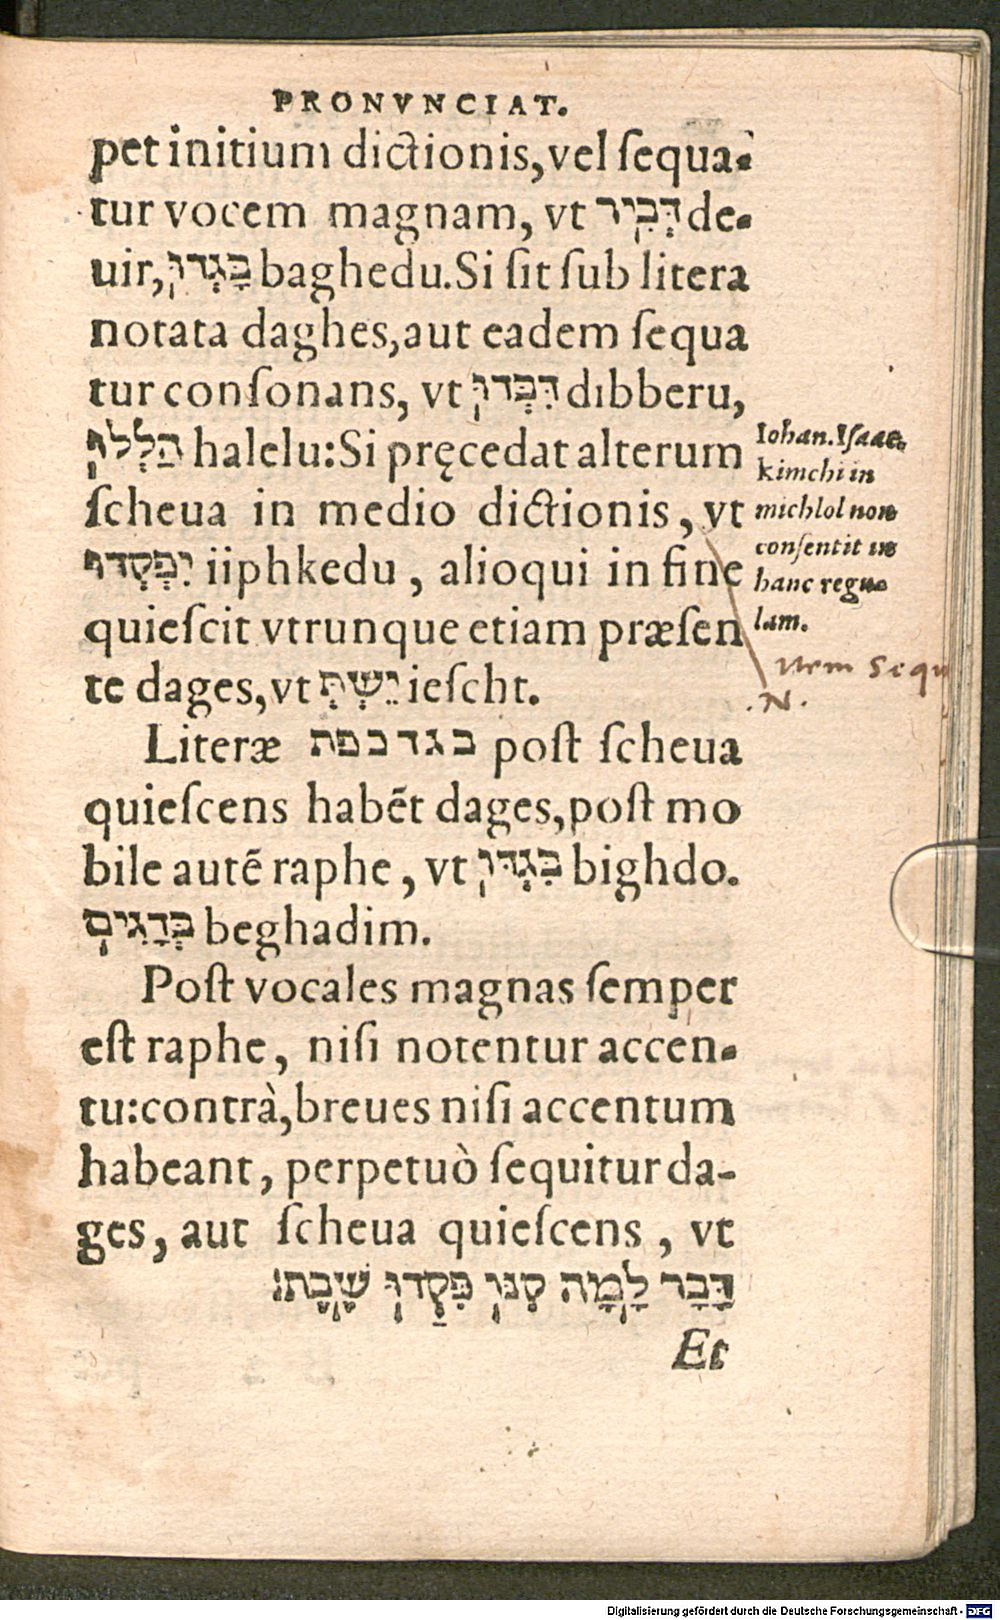 PRONVNCIAT.
pet initium dictionis, vel ſequa-
tur vocem magnam, vt דְּבִיר de-
uir, בָּגְדוּ baghedu. Si ſit ſub litera
notata daghes, aut eadem ſequa
tur conſonans, vt דִּבְּרוּ dibberu,
הַלְלוּ halelu: Si pręcedat alterum
ſcheua in medio dictionis, vt
יִפְקְדוּ iiphkedu, alioqui in fine
quieſcit vtrunque etiam præſen
te dages, vt יֵשְׁתְּ ieſcht.
Literæ בגדכפת poſt ſcheua
quieſcens habēt dages, poſt mo
bile autē raphe, vt בִּגְדּוֹ bighdo.
בְּדָגִים beghadim.
Poſt vocales magnas ſemper
eſt raphe, niſi notentur accen-
tu: contrà, breues niſi accentum
habeant, perpetuò ſequitur da-
ges, aut ſcheua quieſcens, vt
דָּבָר לָמָּה פִּקְדוּ
Et
Iohan. Iſaac.
kimchi in
michlol non
conſentit in
hanc regu-
lam.
Item Sequ
.N.